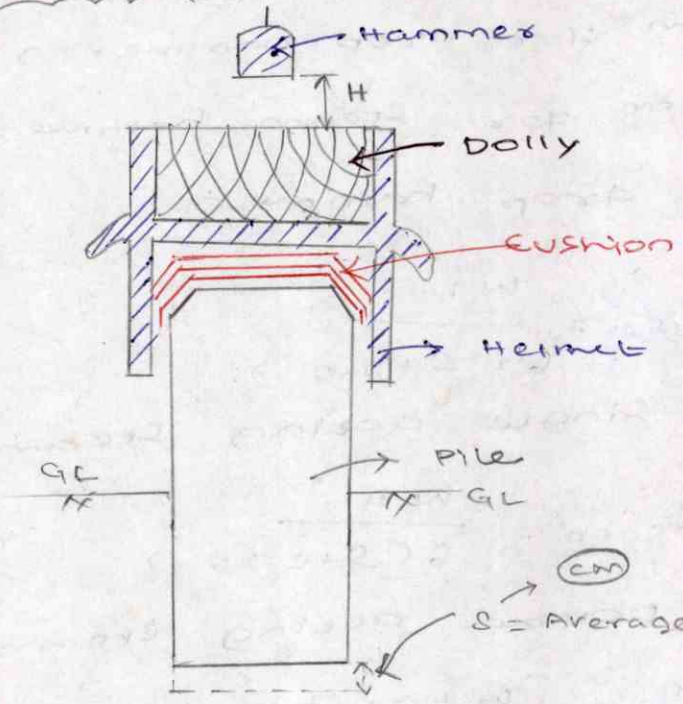 Hammer
H
Dolly
Cushion
Helmet
Pile
GL
GL
cm
S = Average